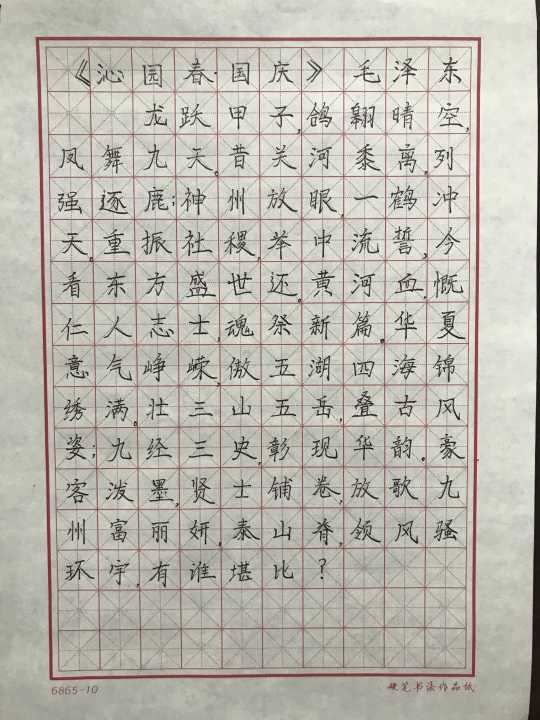 《沁园春·国庆》毛泽东
龙跃甲子,鸽翱晴空,
凤舞九天。昔关河黍离,列
强逐鹿;神州放眼,一鹤冲
天。重振社稷,举中流誓,今
看东方盛世还。黄河血,慨
仁人志士,魂祭新篇。华夏
意气峥嵘,傲五湖四海锦
绣满。壮三山五岳,叠古风
姿;九经三史,彰现华韵。豪
客泼墨,贤士铺卷,放歌九
州富丽妍,泰山脊,领风骚
环宇,有谁堪比?
6865-10
硬笔书法作品纸